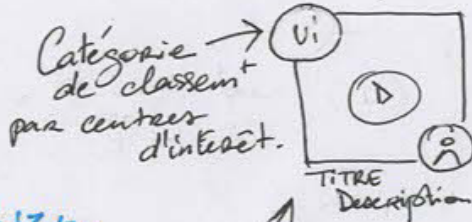 Catégorie
de classemt
par centres
d'intérêt.
Ui
TITRE
Description